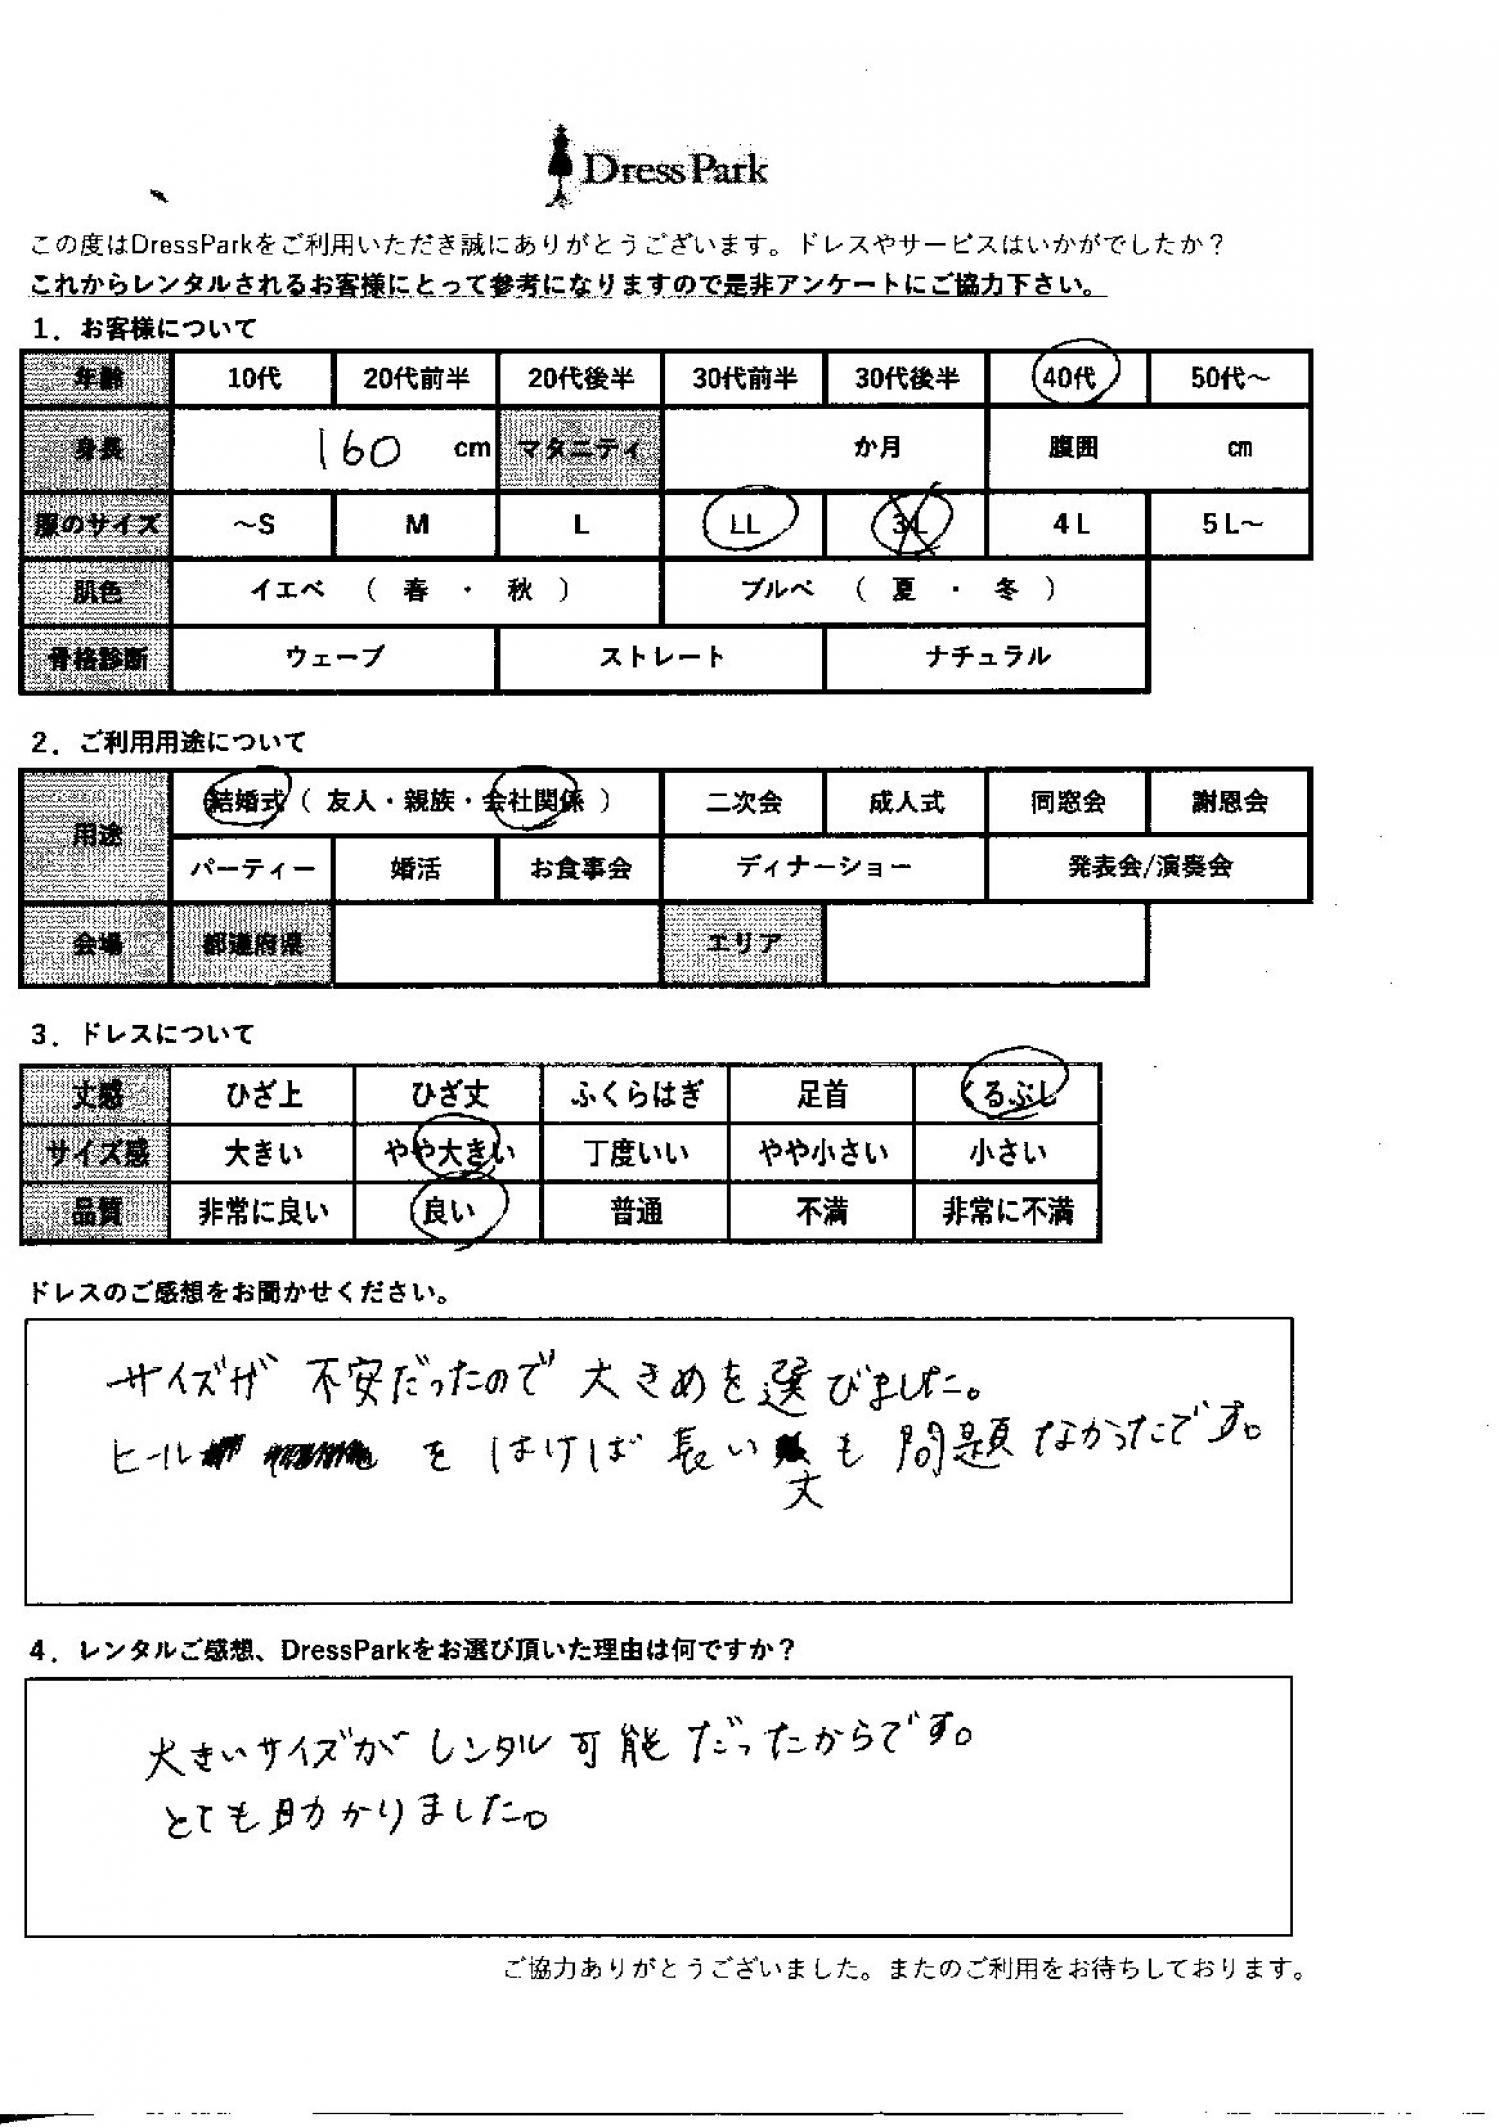 DressPark
この度はDressParkをご利用いただき誠にありがとうございます。ドレスやサービスはいかがでしたか？
これからレンタルされるお客様にとって参考になりますので是非アンケートにご協力下さい。
1．お客様について
年齢 10代 20代前半 20代後半 30代前半 30代後半 40代 50代～
身長 160 cm マタニティ か月 腹囲 cm
服のサイズ ～S M L LL 3L 4L 5L～
肌色 イエベ （ 春 ・ 秋 ） ブルベ （ 夏 ・ 冬 ）
骨格診断 ウェーブ ストレート ナチュラル
2．ご利用用途について
用途 結婚式（ 友人・親族・会社関係 ） 二次会 成人式 同窓会 謝恩会
パーティー 婚活 お食事会 ディナーショー 発表会/演奏会
会場 都道府県 エリア
3．ドレスについて
丈感 ひざ上 ひざ丈 ふくらはぎ 足首 くるぶし
サイズ感 大きい やや大きい 丁度いい やや小さい 小さい
品質 非常に良い 良い 普通 不満 非常に不満
ドレスのご感想をお聞かせください。
サイズが 不安だったので 大きめを選びました。
ヒール を はけば 長い丈も 問題なかったです。
4．レンタルご感想、DressParkをお選び頂いた理由は何ですか？
大きいサイズが レンタル 可能だったからです。
とても助かりました。
ご協力ありがとうございました。またのご利用をお待ちしております。